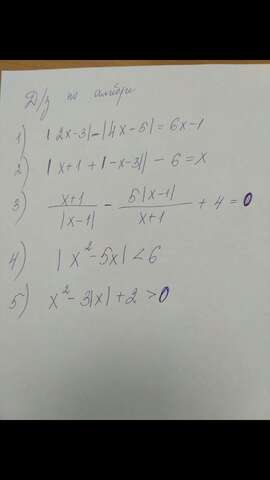 Д/з по алгебре
1) |2x-3|-|4x-5|=6x-1
2) |x+1+|-x-3||-6=x
3) x+1/|x-1| - 5|x-1|/x+1 + 4 = 0
4) |x²-5x|<6
5) x²-3|x|+2>0